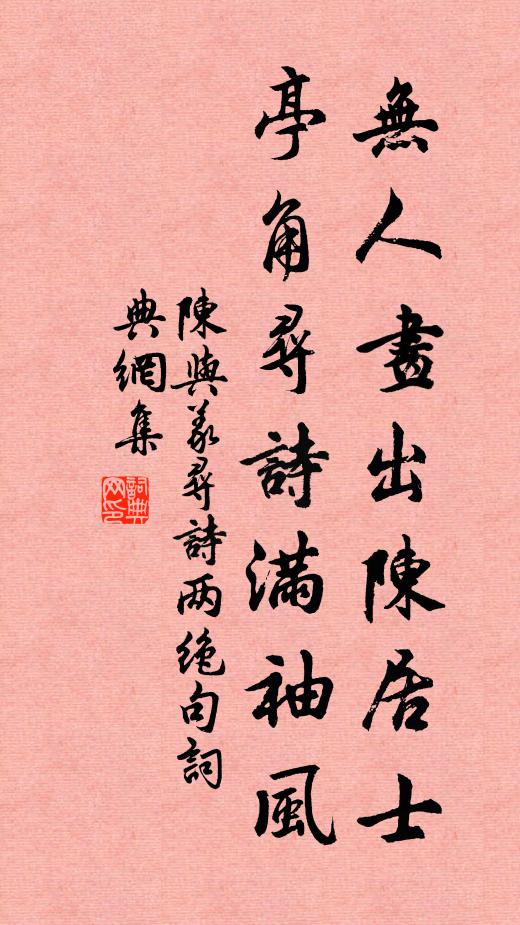 無人畫出陳居士
亭角尋詩滿袖風
陳與义尋詩两绝句詞
典網集
詞典網印